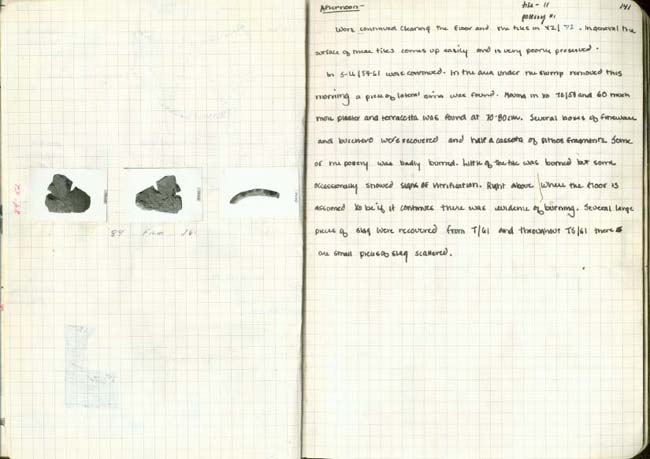 84 Film 26
Afternoon -
tile - 11
pottery #1
141
Work continued clearing the floor and the tiles in 42/ In general the
surface of these tiles comes up easily and is very poorly preserved.
In S-U/59-61 work continued. In the area under the stump removed this
morning a piece of lateral sima was found. Moving in to T8/59 and 60 much
more plaster and terracotta was found at 70-80cm. Several boxes of fineware
and bucchero were recovered and half a cassetta of pithos fragments. Some
of the pottery was badly burned. Little of the tile was burned but some
occasionally showed signs of vitrification. Right above where the floor is
assumed to be if it continues there was evidence of burning. Several large
pieces of slag were recovered from T/61 and throughout TS/61 there
are small pieces of slag scattered.